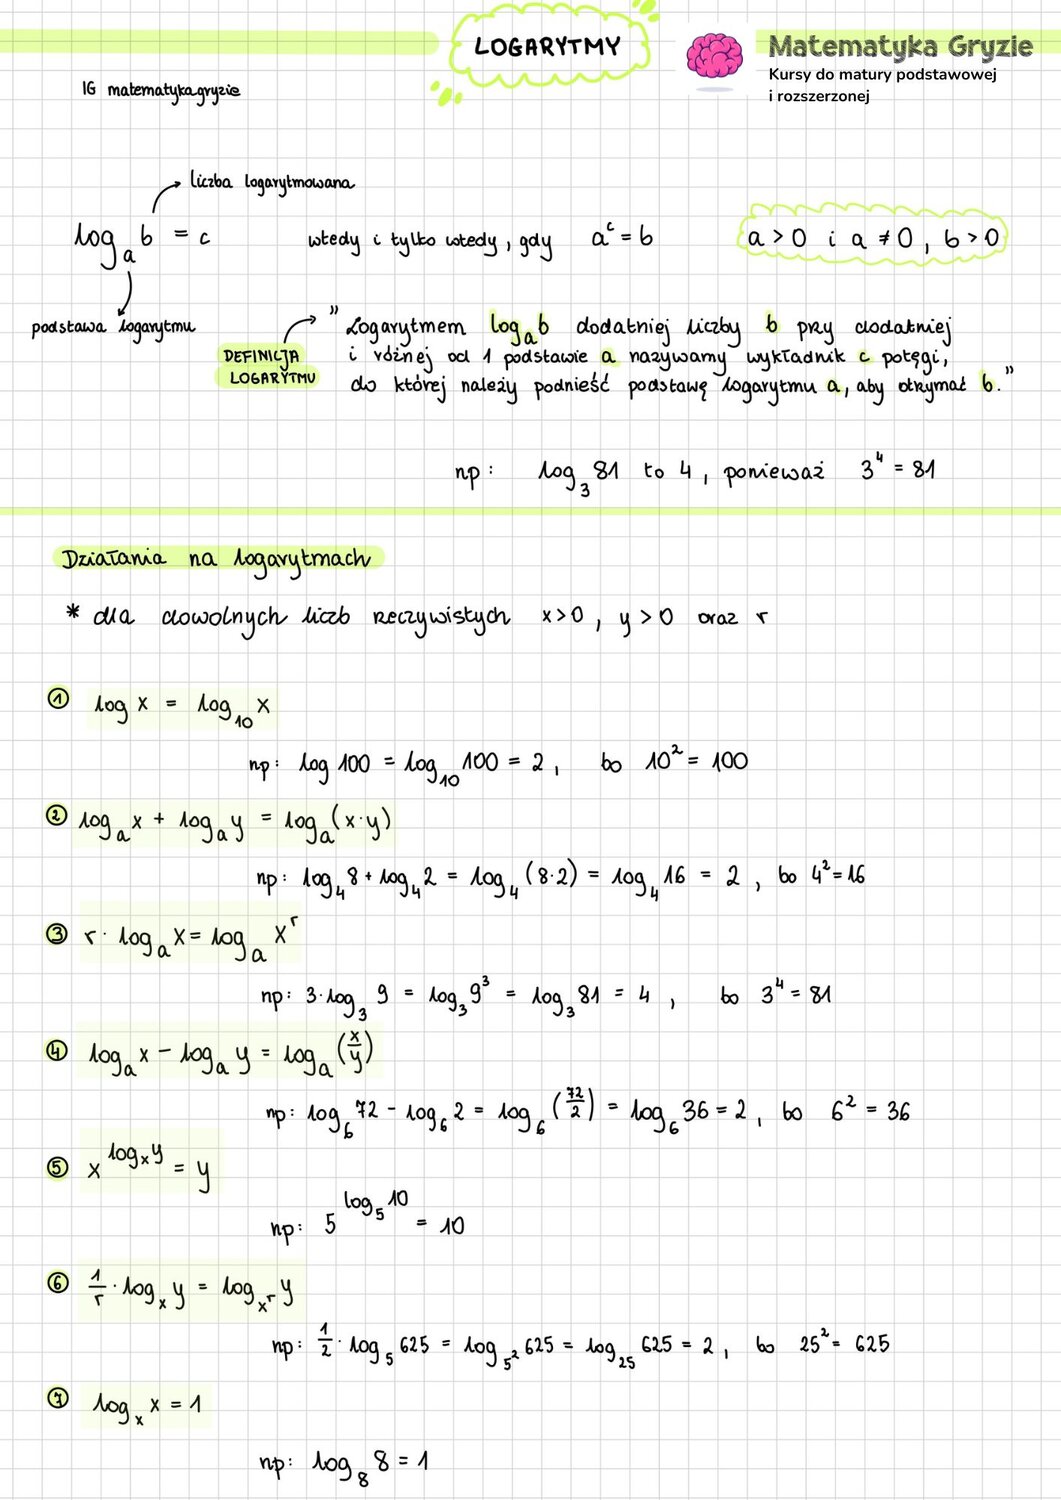 LOGARYTMY
Matematyka Gryzie
Kursy do matury podstawowej
i rozszerzonej
IG matematykagryzie
liczba logarytmowana
logₐb = c wtedy i tylko wtedy, gdy aᶜ = b a > 0 i a ≠ 0, b > 0
podstawa logarytmu
DEFINICJA
LOGARYTMU
"Logarytmem logₐb dodatniej liczby b przy dodatniej
i różnej od 1 podstawie a nazywamy wykładnik c potęgi,
do której należy podnieść podstawę logarytmu a, aby otrzymać b."
np: log₃81 to 4, ponieważ 3⁴ = 81
Działania na logarytmach
* dla dowolnych liczb rzeczywistych x>0, y>0 oraz r
① log x = log₁₀x
np: log 100 = log₁₀100 = 2, bo 10² = 100
② logₐx + logₐy = logₐ(x·y)
np: log₄8 + log₄2 = log₄(8·2) = log₄16 = 2, bo 4²=16
③ r·logₐx = logₐxʳ
np: 3·log₃9 = log₃9³ = log₃81 = 4, bo 3⁴ = 81
④ logₐx − logₐy = logₐ(x/y)
np: log₆72 − log₆2 = log₆(72/2) = log₆36 = 2, bo 6² = 36
⑤ x^(logₓy) = y
np: 5^(log₅10) = 10
⑥ 1/r · logₓy = log_(xʳ) y
np: 1/2 · log₅625 = log_(5²) 625 = log₂₅625 = 2, bo 25² = 625
⑦ logₓx = 1
np: log₈8 = 1